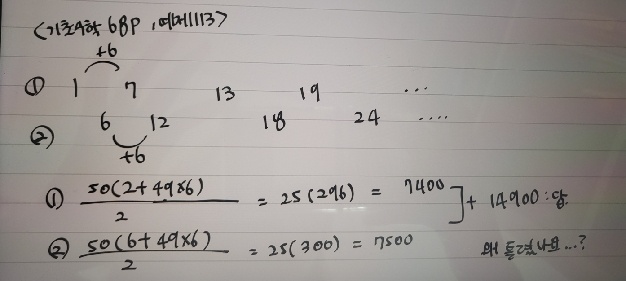 <기초수학 68P, 예제1113>
+6
① 1 7 13 19 ...
② 6 12 18 24 ....
+6
① 50(2+49×6) / 2 = 25(296) = 7400
] + 14900 : 답
② 50(6+49×6) / 2 = 25(300) = 7500
왜 틀렸나요...?